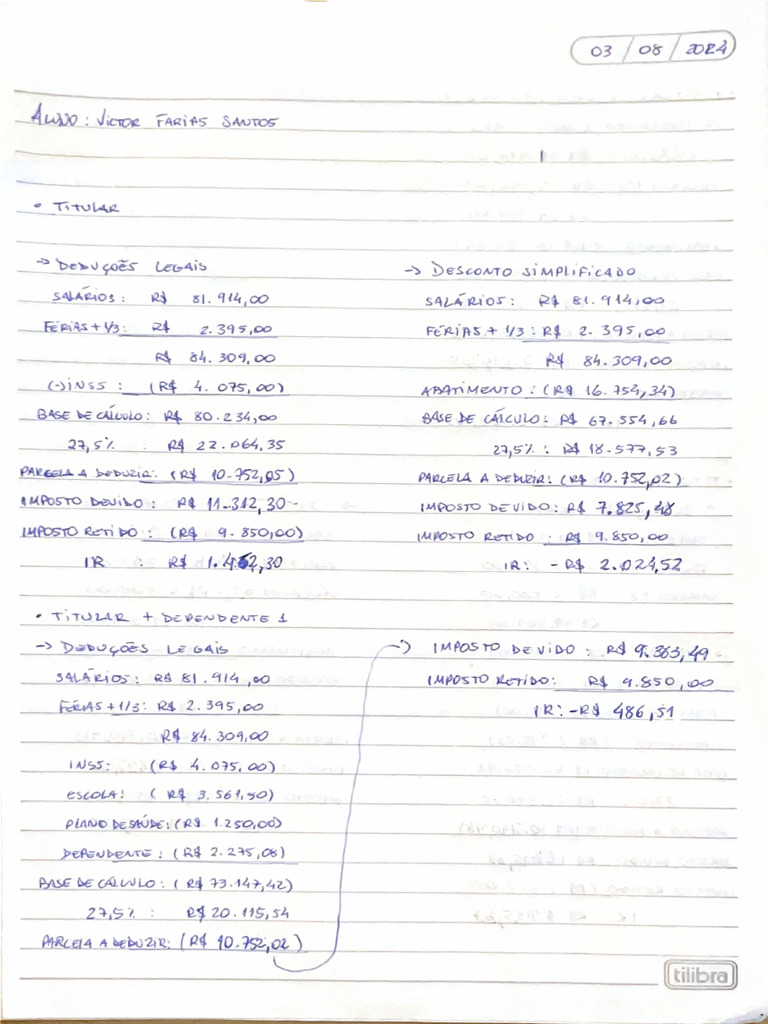 03 / 08 / 2024
ALUNO: VICTOR FARIAS SANTOS
• TITULAR
→ DEDUÇÕES LEGAIS
SALÁRIOS: R$ 81.914,00
FÉRIAS + 1/3: R$ 2.395,00
R$ 84.309,00
(-) INSS: (R$ 4.075,00)
BASE DE CÁLCULO: R$ 80.234,00
27,5% : R$ 22.064,35
PARCELA A DEDUZIR: (R$ 10.752,05)
IMPOSTO DEVIDO: R$ 11.312,30
IMPOSTO RETIDO: (R$ 9.850,00)
IR : R$ 1.462,30
→ DESCONTO SIMPLIFICADO
SALÁRIOS: R$ 81.914,00
FÉRIAS + 1/3: R$ 2.395,00
R$ 84.309,00
ABATIMENTO: (R$ 16.754,34)
BASE DE CÁLCULO: R$ 67.554,66
27,5% : R$ 18.577,53
PARCELA A DEDUZIR: (R$ 10.752,02)
IMPOSTO DEVIDO: R$ 7.825,48
IMPOSTO RETIDO: R$ 9.850,00
IR: - R$ 2.024,52
• TITULAR + DEPENDENTE 1
→ DEDUÇÕES LEGAIS
SALÁRIOS: R$ 81.914,00
FÉRIAS + 1/3: R$ 2.395,00
R$ 84.309,00
INSS: (R$ 4.075,00)
ESCOLA: (R$ 3.561,50)
PLANO DE SAÚDE: (R$ 1.250,00)
DEPENDENTE: (R$ 2.275,08)
BASE DE CÁLCULO: (R$ 73.147,42)
27,5% : R$ 20.115,54
PARCELA A DEDUZIR: (R$ 10.752,02)
IMPOSTO DEVIDO: R$ 9.363,49
IMPOSTO RETIDO: R$ 9.850,00
IR: - R$ 486,51
tilibra